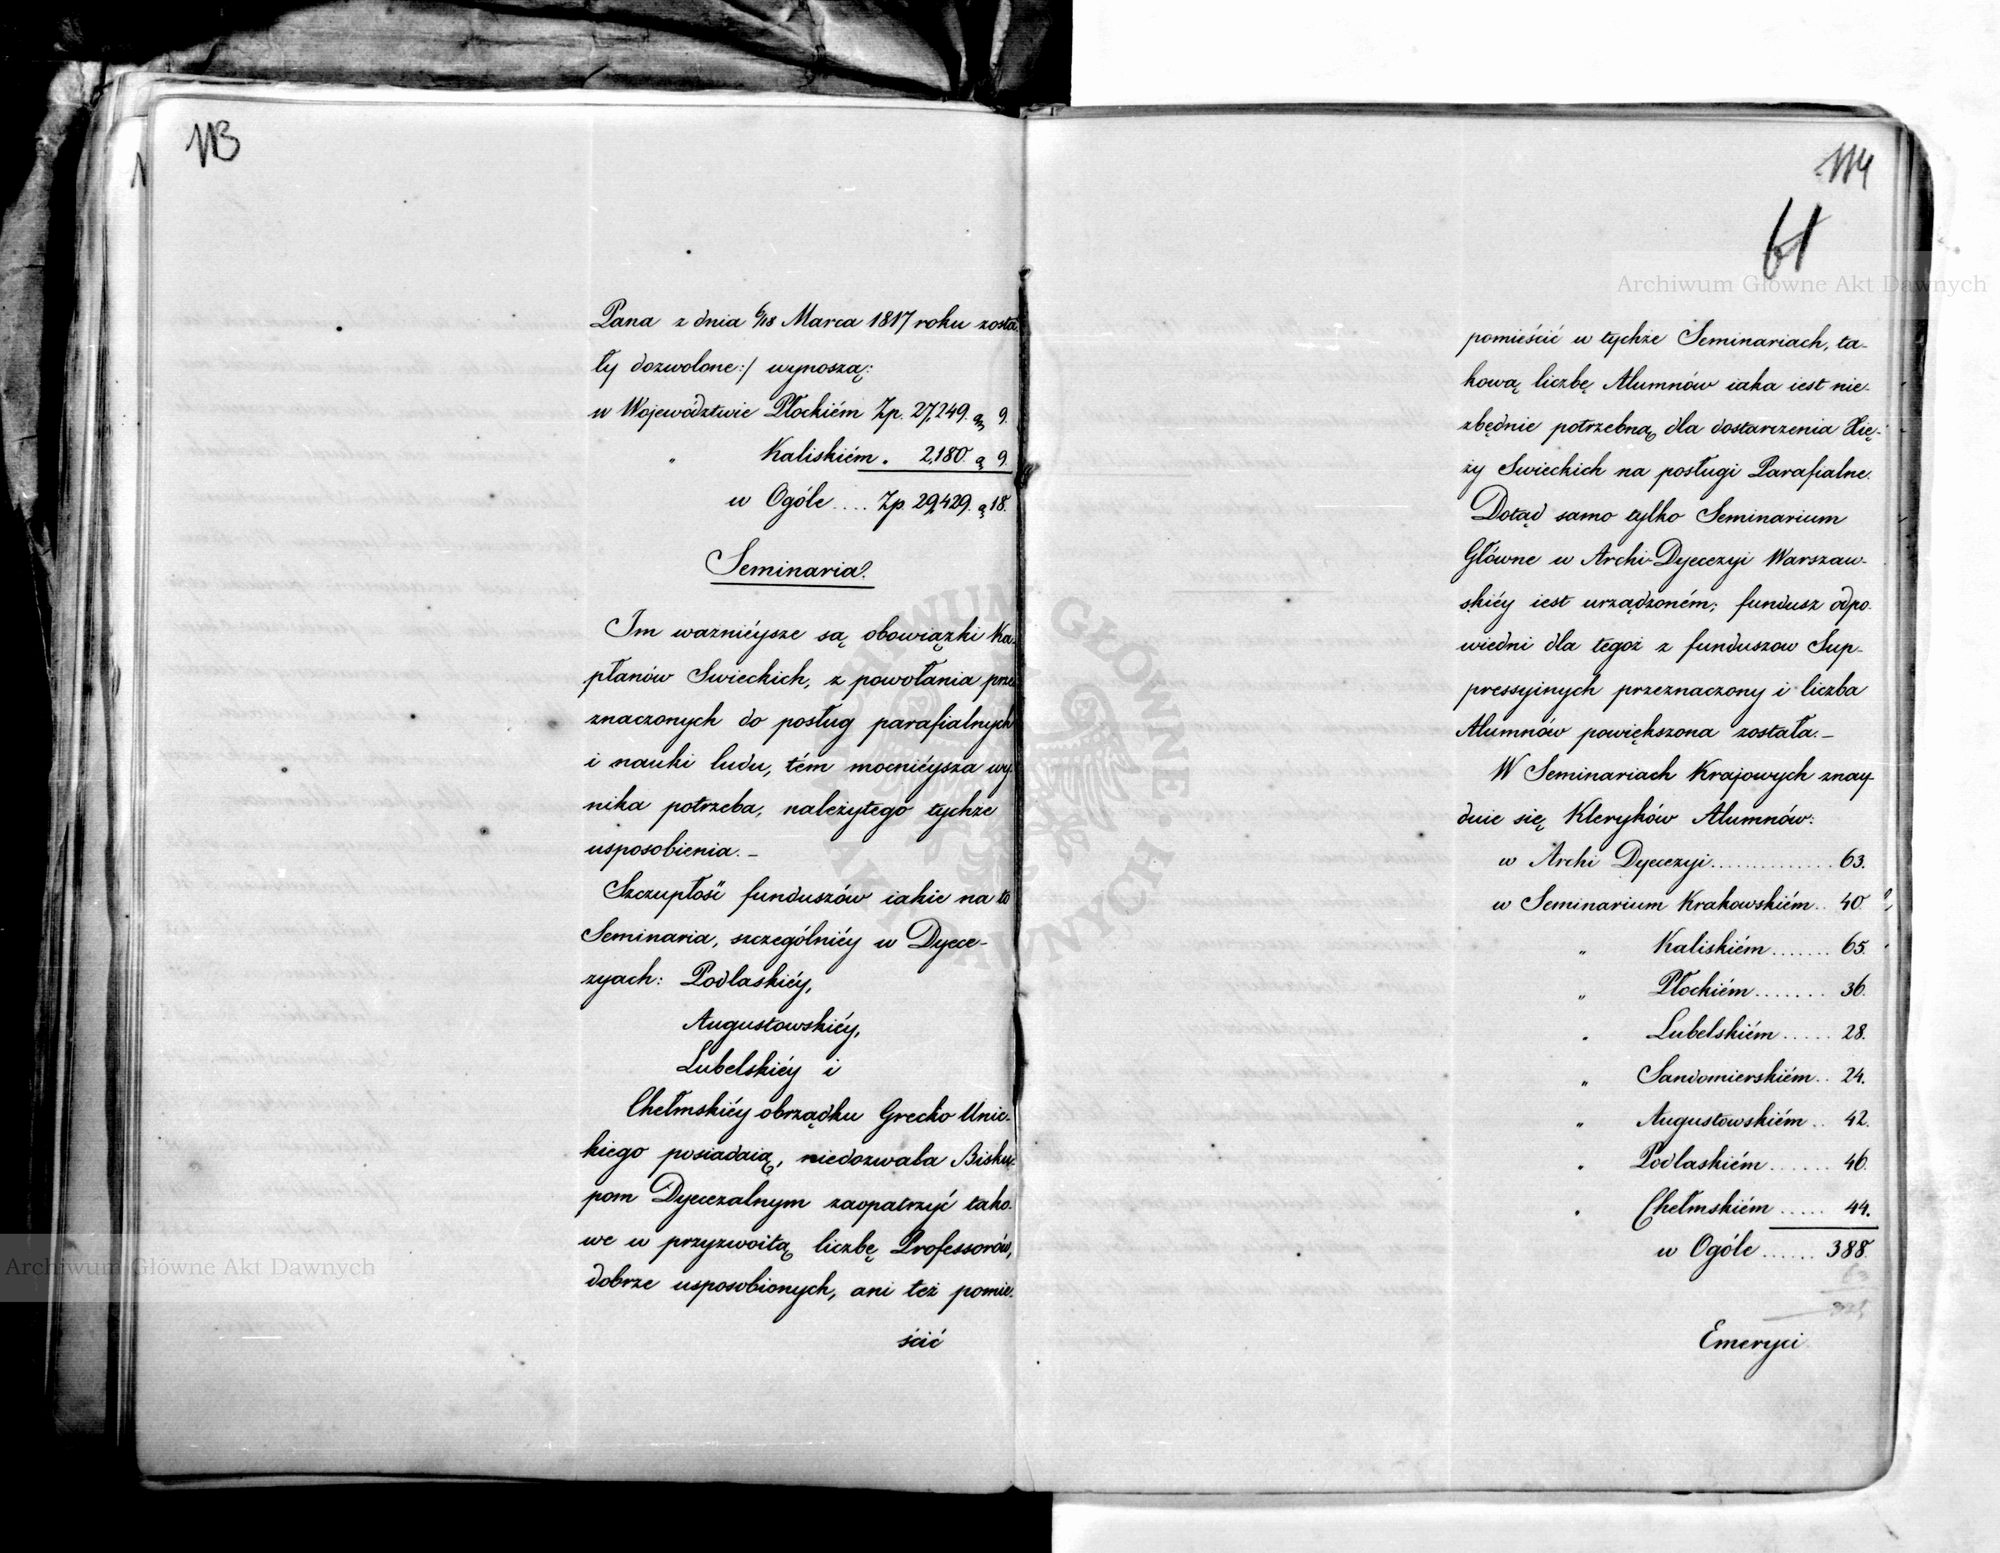 113
Pana z dnia 6/18 Marca 1817 roku zosta
ły dozwolone:/ wynoszą:
w Województwie Płockiém Zp. 27,249. g. 9.
" Kaliskiém " 2,180. g. 9.
w Ogóle .... Zp. 29,429. g. 18.
Seminaria.
Im ważnieysze są obowiązki Ka-
płanów Swieckich, z powołania prze
znaczonych do posług parafialnych
i nauki ludu, tém mocnieysza wy-
nika potrzeba, należytego tychże
usposobienia.—
Szczupłość funduszów iakie na to
Seminaria, szczególniéy w Dyece-
zyach: Podlaskiéy,
Augustowskiéy,
Lubelskiéy i
Chełmskiéy obrządku Grecko Unic-
kiego posiadaią, niedozwala Bisku-
pom Dyecezalnym zaopatrzyć tako-
we w przyzwoitą liczbę Professorów,
dobrze usposobionych, ani też pomie-
ścić
114
61
pomieścić w tychże Seminariach, ta-
kową liczbę Alumnów iaka iest nie-
zbędnie potrzebną, dla dostarczenia Xię-
ży Swieckich na posługi Parafialne.
Dotąd samo tylko Seminarium
Główne w Archi-Dyecezyi Warszaw-
skiéy iest urządzoném; fundusz odpo-
wiedni dla tegoż z funduszow Sup-
pressyinych przeznaczony i liczba
Alumnów powiększona została.—
W Seminariach Krajowych znay-
duie się Kleryków Alumnów:
w Archi Dyecezyi ............. 63.
w Seminarium Krakowskiém .. 40.
" Kaliskiém ....... 65.
" Płockiém ....... 36.
" Lubelskiém ..... 28.
" Sandomierskiém .. 24.
" Augustowskiém .. 42.
" Podlaskiém ...... 46.
" Chełmskiém ..... 44.
w Ogóle ...... 388.
63
Emeryci
Archiwum Główne Akt Dawnych
Archiwum Główne Akt Dawnych
ARCHIWUM GŁÓWNE AKT DAWNYCH